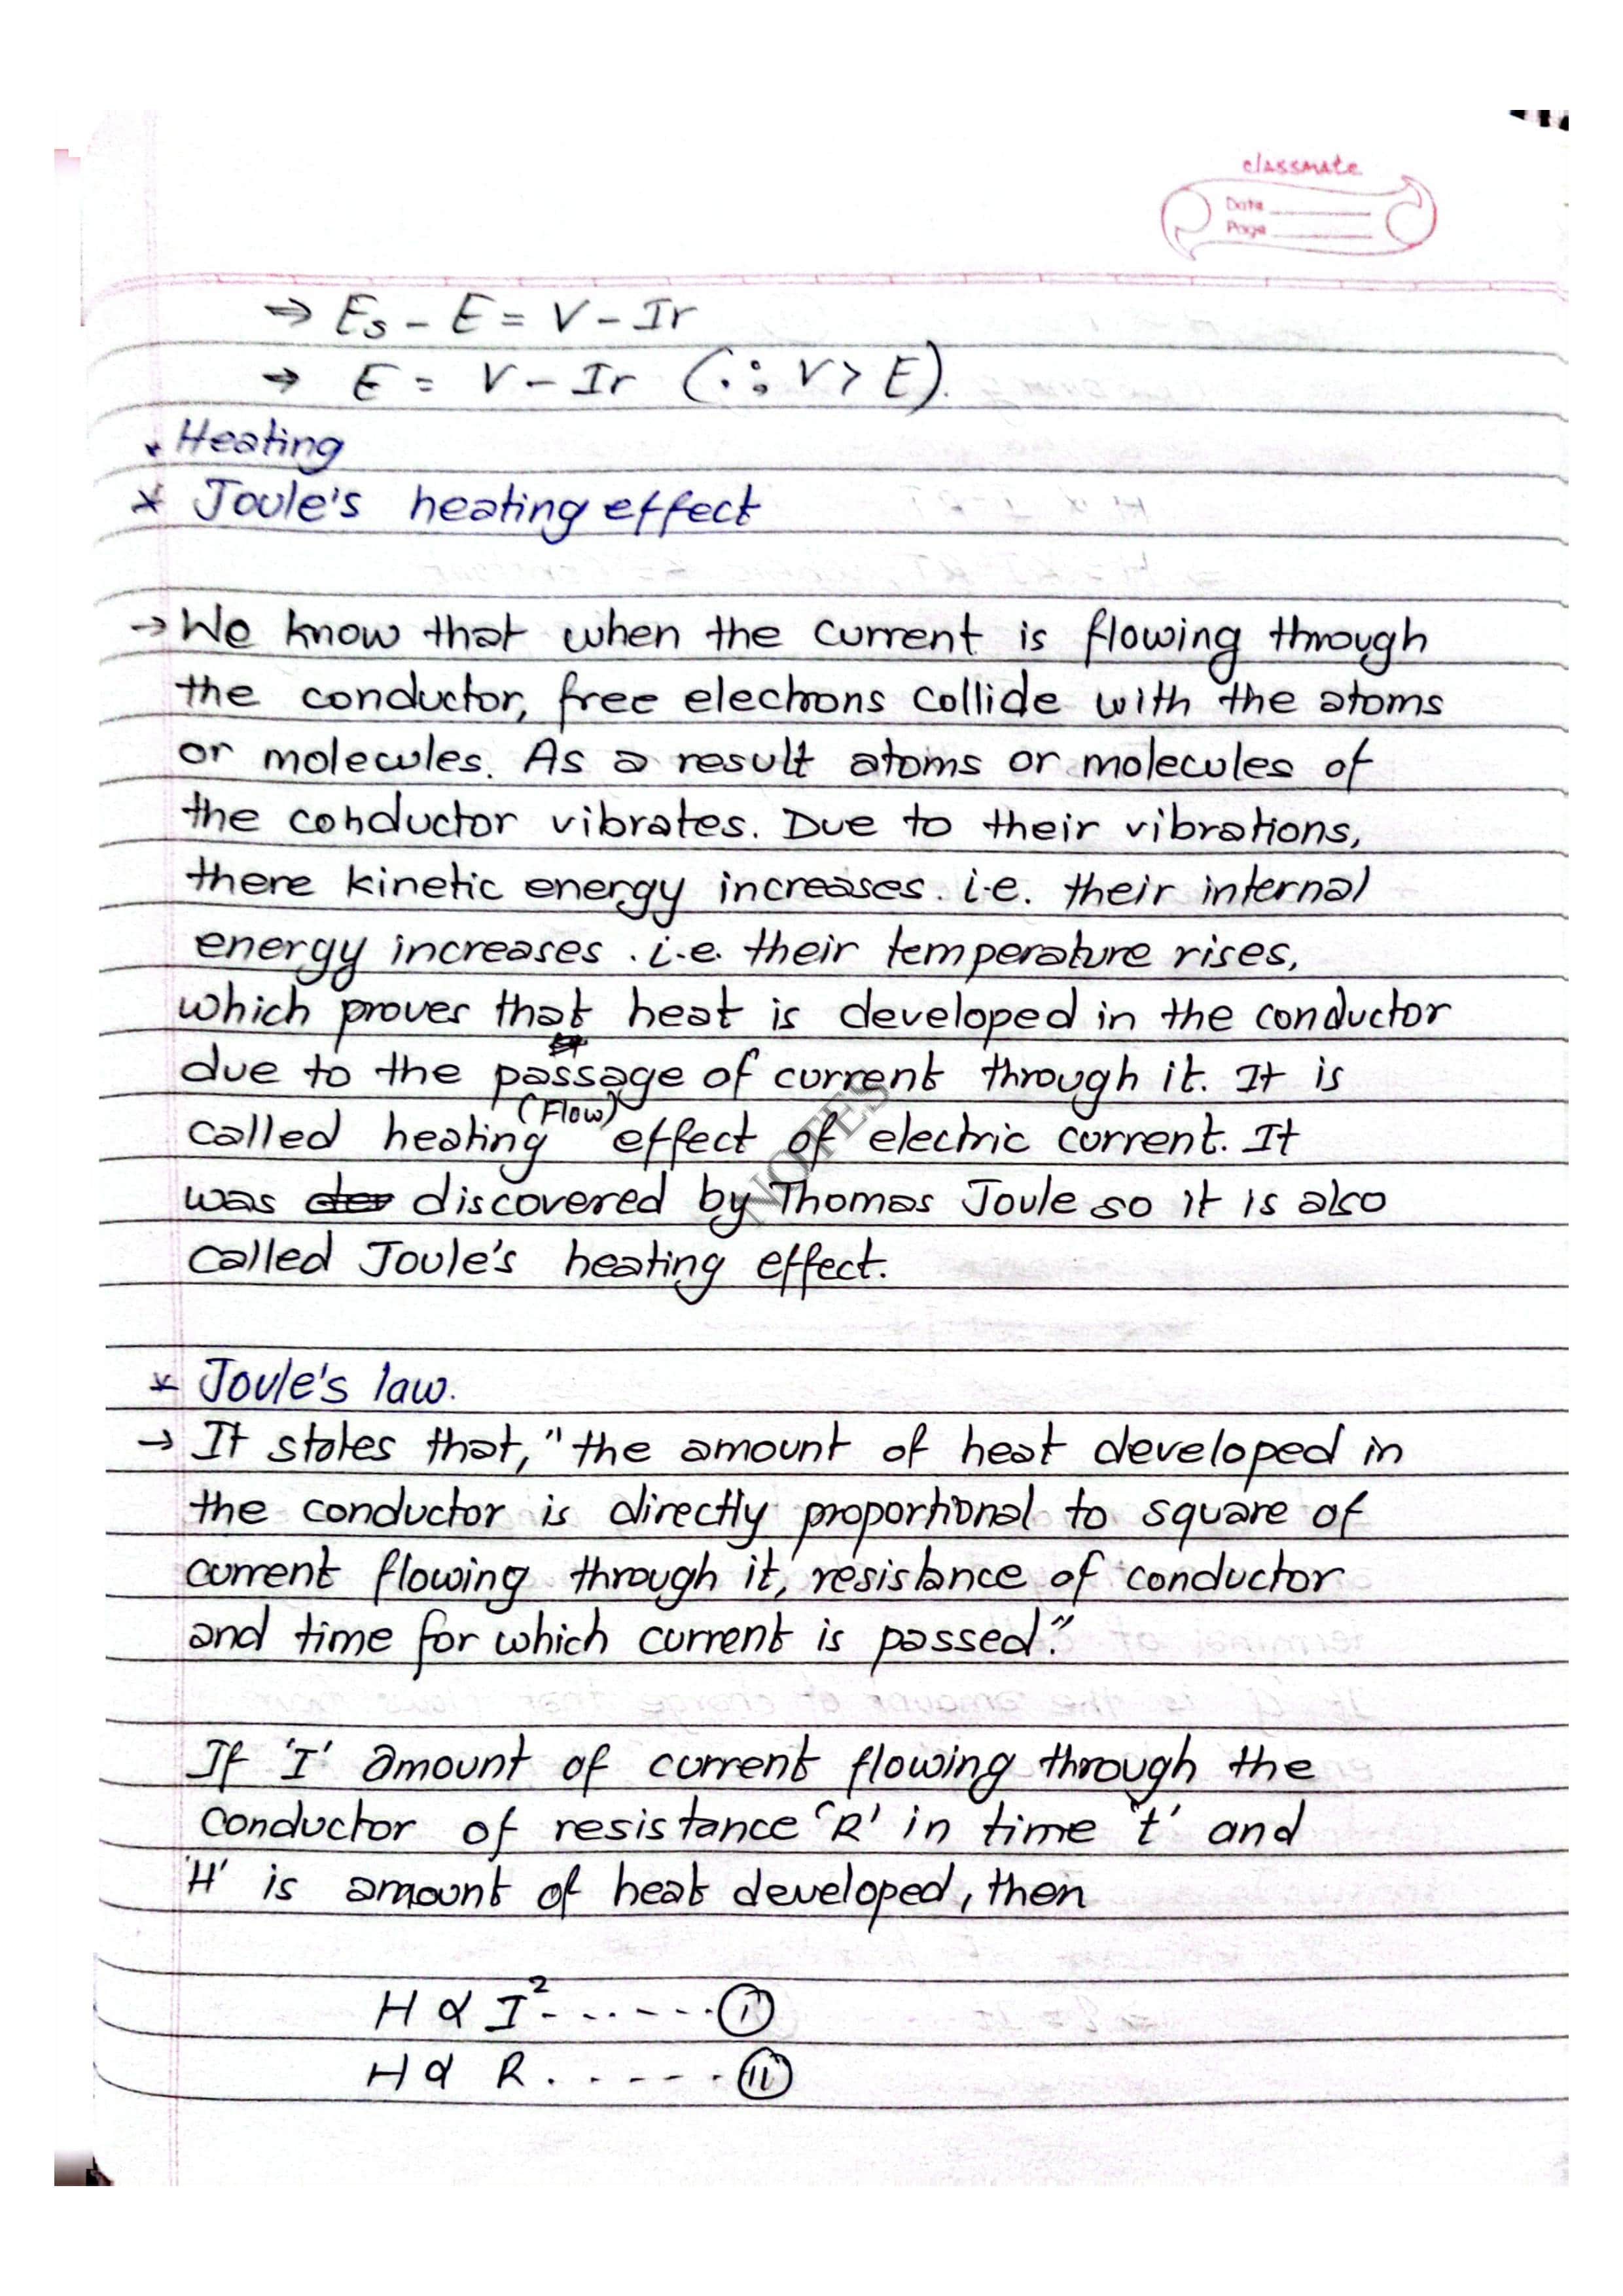 classmate
Date
Page
⇒ Es - E = V - Ir
→ E = V - Ir (∵ V > E).
* Heating
* Joule's heating effect
→ We know that when the current is flowing through
the conductor, free electrons collide with the atoms
or molecules. As a result atoms or molecules of
the conductor vibrates. Due to their vibrations,
there kinetic energy increases. i.e. their internal
energy increases. i.e. their temperature rises,
which proves that heat is developed in the conductor
due to the passage of current through it. It is
(Flow)
called heating effect of electric current. It
was discovered by Thomas Joule so it is also
called Joule's heating effect.
NOTES
* Joule's law.
→ It states that, "the amount of heat developed in
the conductor is directly proportional to square of
current flowing through it, resistance of conductor
and time for which current is passed."
If 'I' amount of current flowing through the
conductor of resistance 'R' in time 't' and
'H' is amount of heat developed, then
H ∝ I² - . . - - - . (i)
H ∝ R . . - - - . (ii)